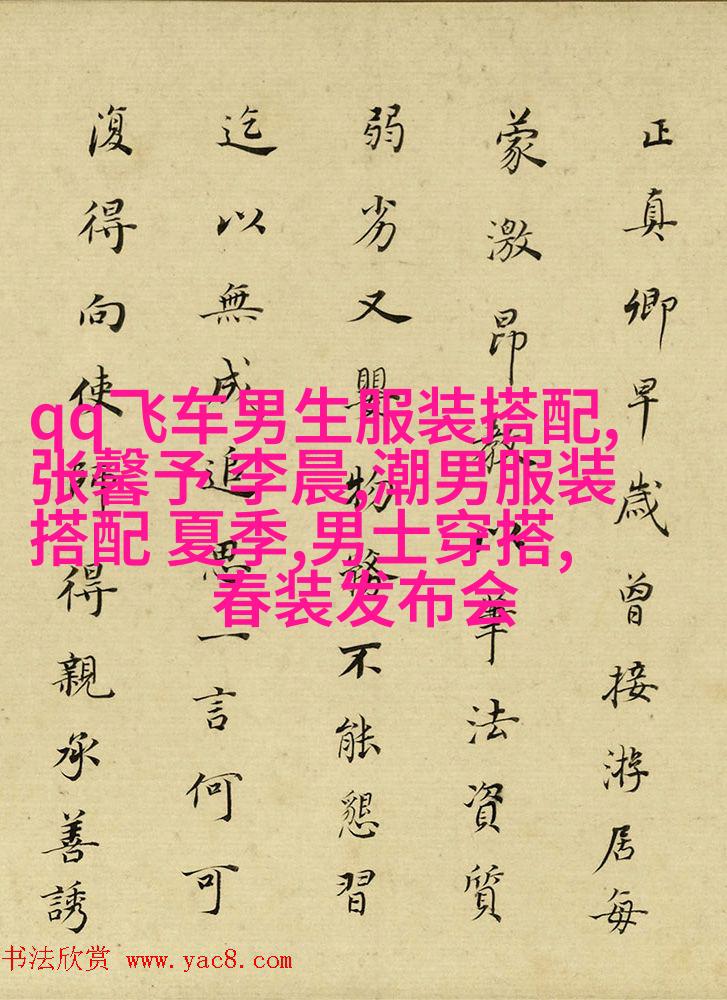 正真卿早歲曾接游居每
蒙激昂教以筆法資質
弱劣又嬰物務不能懇習
迄以無成追思一言何可
復得向使師得親承善誘
qq飞车男生服装搭配,
张馨予 李晨,潮男服装
搭配 夏季,男士穿搭,
春装发布会
书法欣赏 www.yac8.com